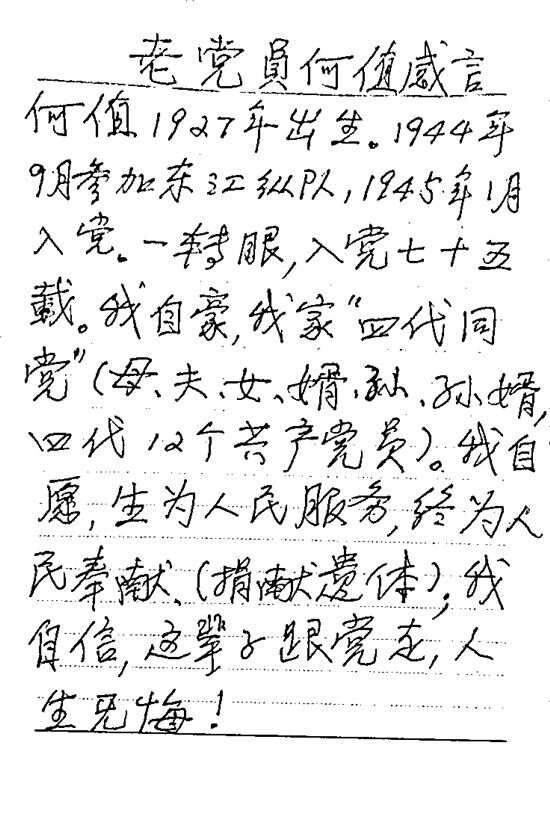 老党員何值感言
何值1927年出生。1944年
9月参加东江纵队,1945年1月
入党。一转眼,入党七十五
载。我自豪,我家“四代同
党”(母、夫、女、婿、孙、孙婿,
四代12个共产党员)。我自
愿,生为人民服务,终为人
民奉献、(捐献遗体);我
自信,这辈子跟党走,人
生无悔!